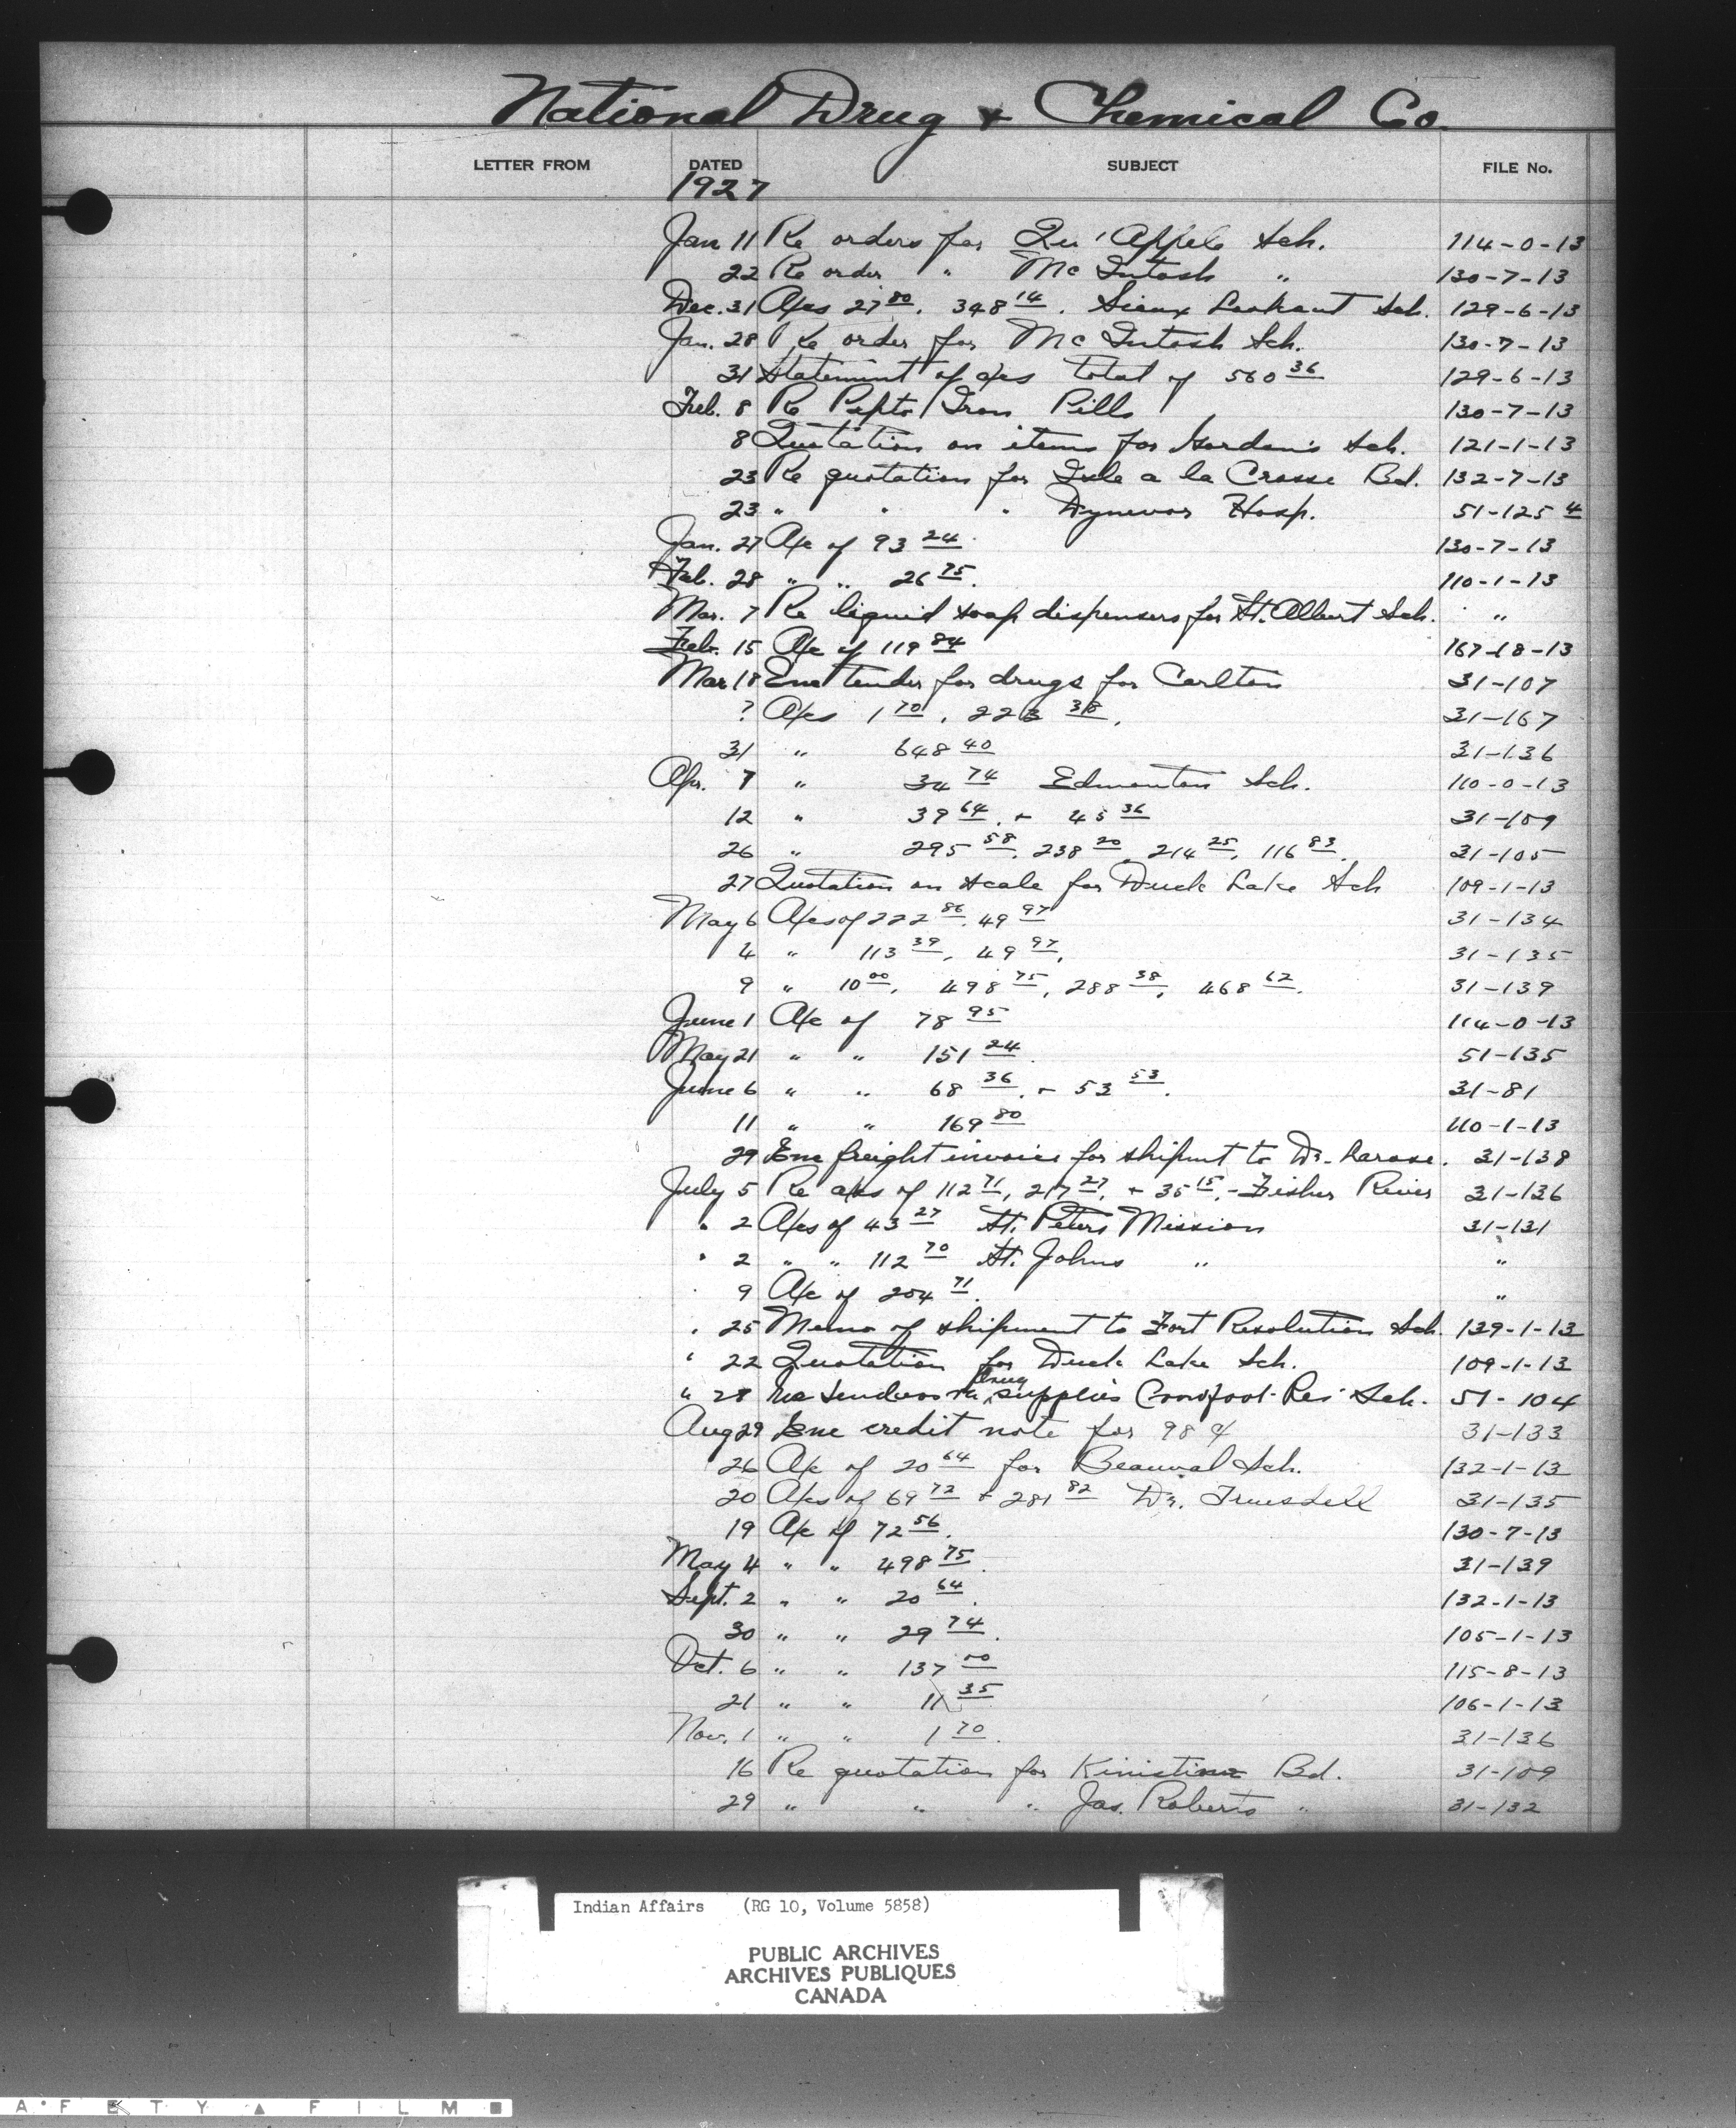 National Drug & Chemical Co.
LETTER FROM DATED SUBJECT FILE No.
1927
Jan 11 Re orders for Qu'Appele Sch. 114-0-13
22 Re order " McIntosh " 130-7-13
Dec. 31 A/cs 27 80, 348 14. Sioux Lookout Sch. 129-6-13
Jan. 28 Re order for McIntosh Sch. 130-7-13
31 Statement of a/cs total of 560 36 129-6-13
Feb. 8 Re Pepto Iron Pills 130-7-13
8 Quotation on items for Gordon's Sch. 121-1-13
23 Re quotation for Isle a la Crosse Bd. 132-7-13
23 " " " Dynevor Hosp. 51-125 4
Jan. 27 A/c of 93 24. 130-7-13
Feb. 28 " " 26 75. 110-1-13
Mar. 7 Re liquid soap dispensers for St. Albert Sch. "
Feb. 15 A/c of 119 84 167-18-13
Mar 18 Enc tender for drugs for Carlton 31-107
? A/cs 1 70, 223 38. 31-167
31 " 648 40 31-136
Apr. 7 " 34 74 Edmonton Sch. 110-0-13
12 " 39 64. + 45 36 31-109
26 " 295 58, 238 20, 214 25, 116 83. 31-105
27 Quotation on scale for Duck Lake Sch 109-1-13
May 6 A/cs of 222 86. 49 97 31-134
4 " 113 39, 49 97. 31-135
9 " 10 00, 498 75, 288 38, 468 62. 31-139
June 1 A/c of 78 95 114-0-13
May 21 " " 151 24. 51-135
June 6 " " 68 36. + 53 53. 31-81
11 " " 169 80 110-1-13
29 Enc freight invoice for shipmt to Dr. Larose. 31-138
July 5 Re a/cs of 112 71, 217 27, + 35 15, - Fisher River 31-136
" 2 A/cs of 43 27 St. Peters Mission 31-131
" 2 " " 112 70 St. Johns " "
9 A/c of 204 71. "
" 25 Memo of shipment to Fort Resolution Sch. 139-1-13
" 22 Quotation for Duck Lake Sch. 109-1-13
" 28 tenders Drug supplies Crowfoot Res Sch. 51-104
Aug 29 Enc credit note for 98 ¢ 31-133
26 A/c of 20 64 for Beauval Sch. 132-1-13
20 A/cs of 69 72 + 281 82 Dr. Truesdell 31-135
19 A/c of 72 56. 130-7-13
May 4 " " 498 75. 31-139
Sept. 2 " " 20 64. 132-1-13
30 " " 29 74. 105-1-13
Oct. 6 " " 137 00 115-8-13
21 " " 11 35 106-1-13
Nov. 1 " " 1 70. 31-136
16 Re quotation for Kinistino Bd. 31-109
29 " " " Jas. Roberts " 31-132
Indian Affairs (RG 10, Volume 5858)
PUBLIC ARCHIVES
ARCHIVES PUBLIQUES
CANADA
A • F E T Y ▲ F I L M ■